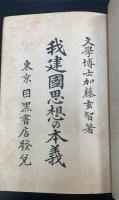 文學博士加藤玄智著
我建國思想の本義
東京目黒書店發兌